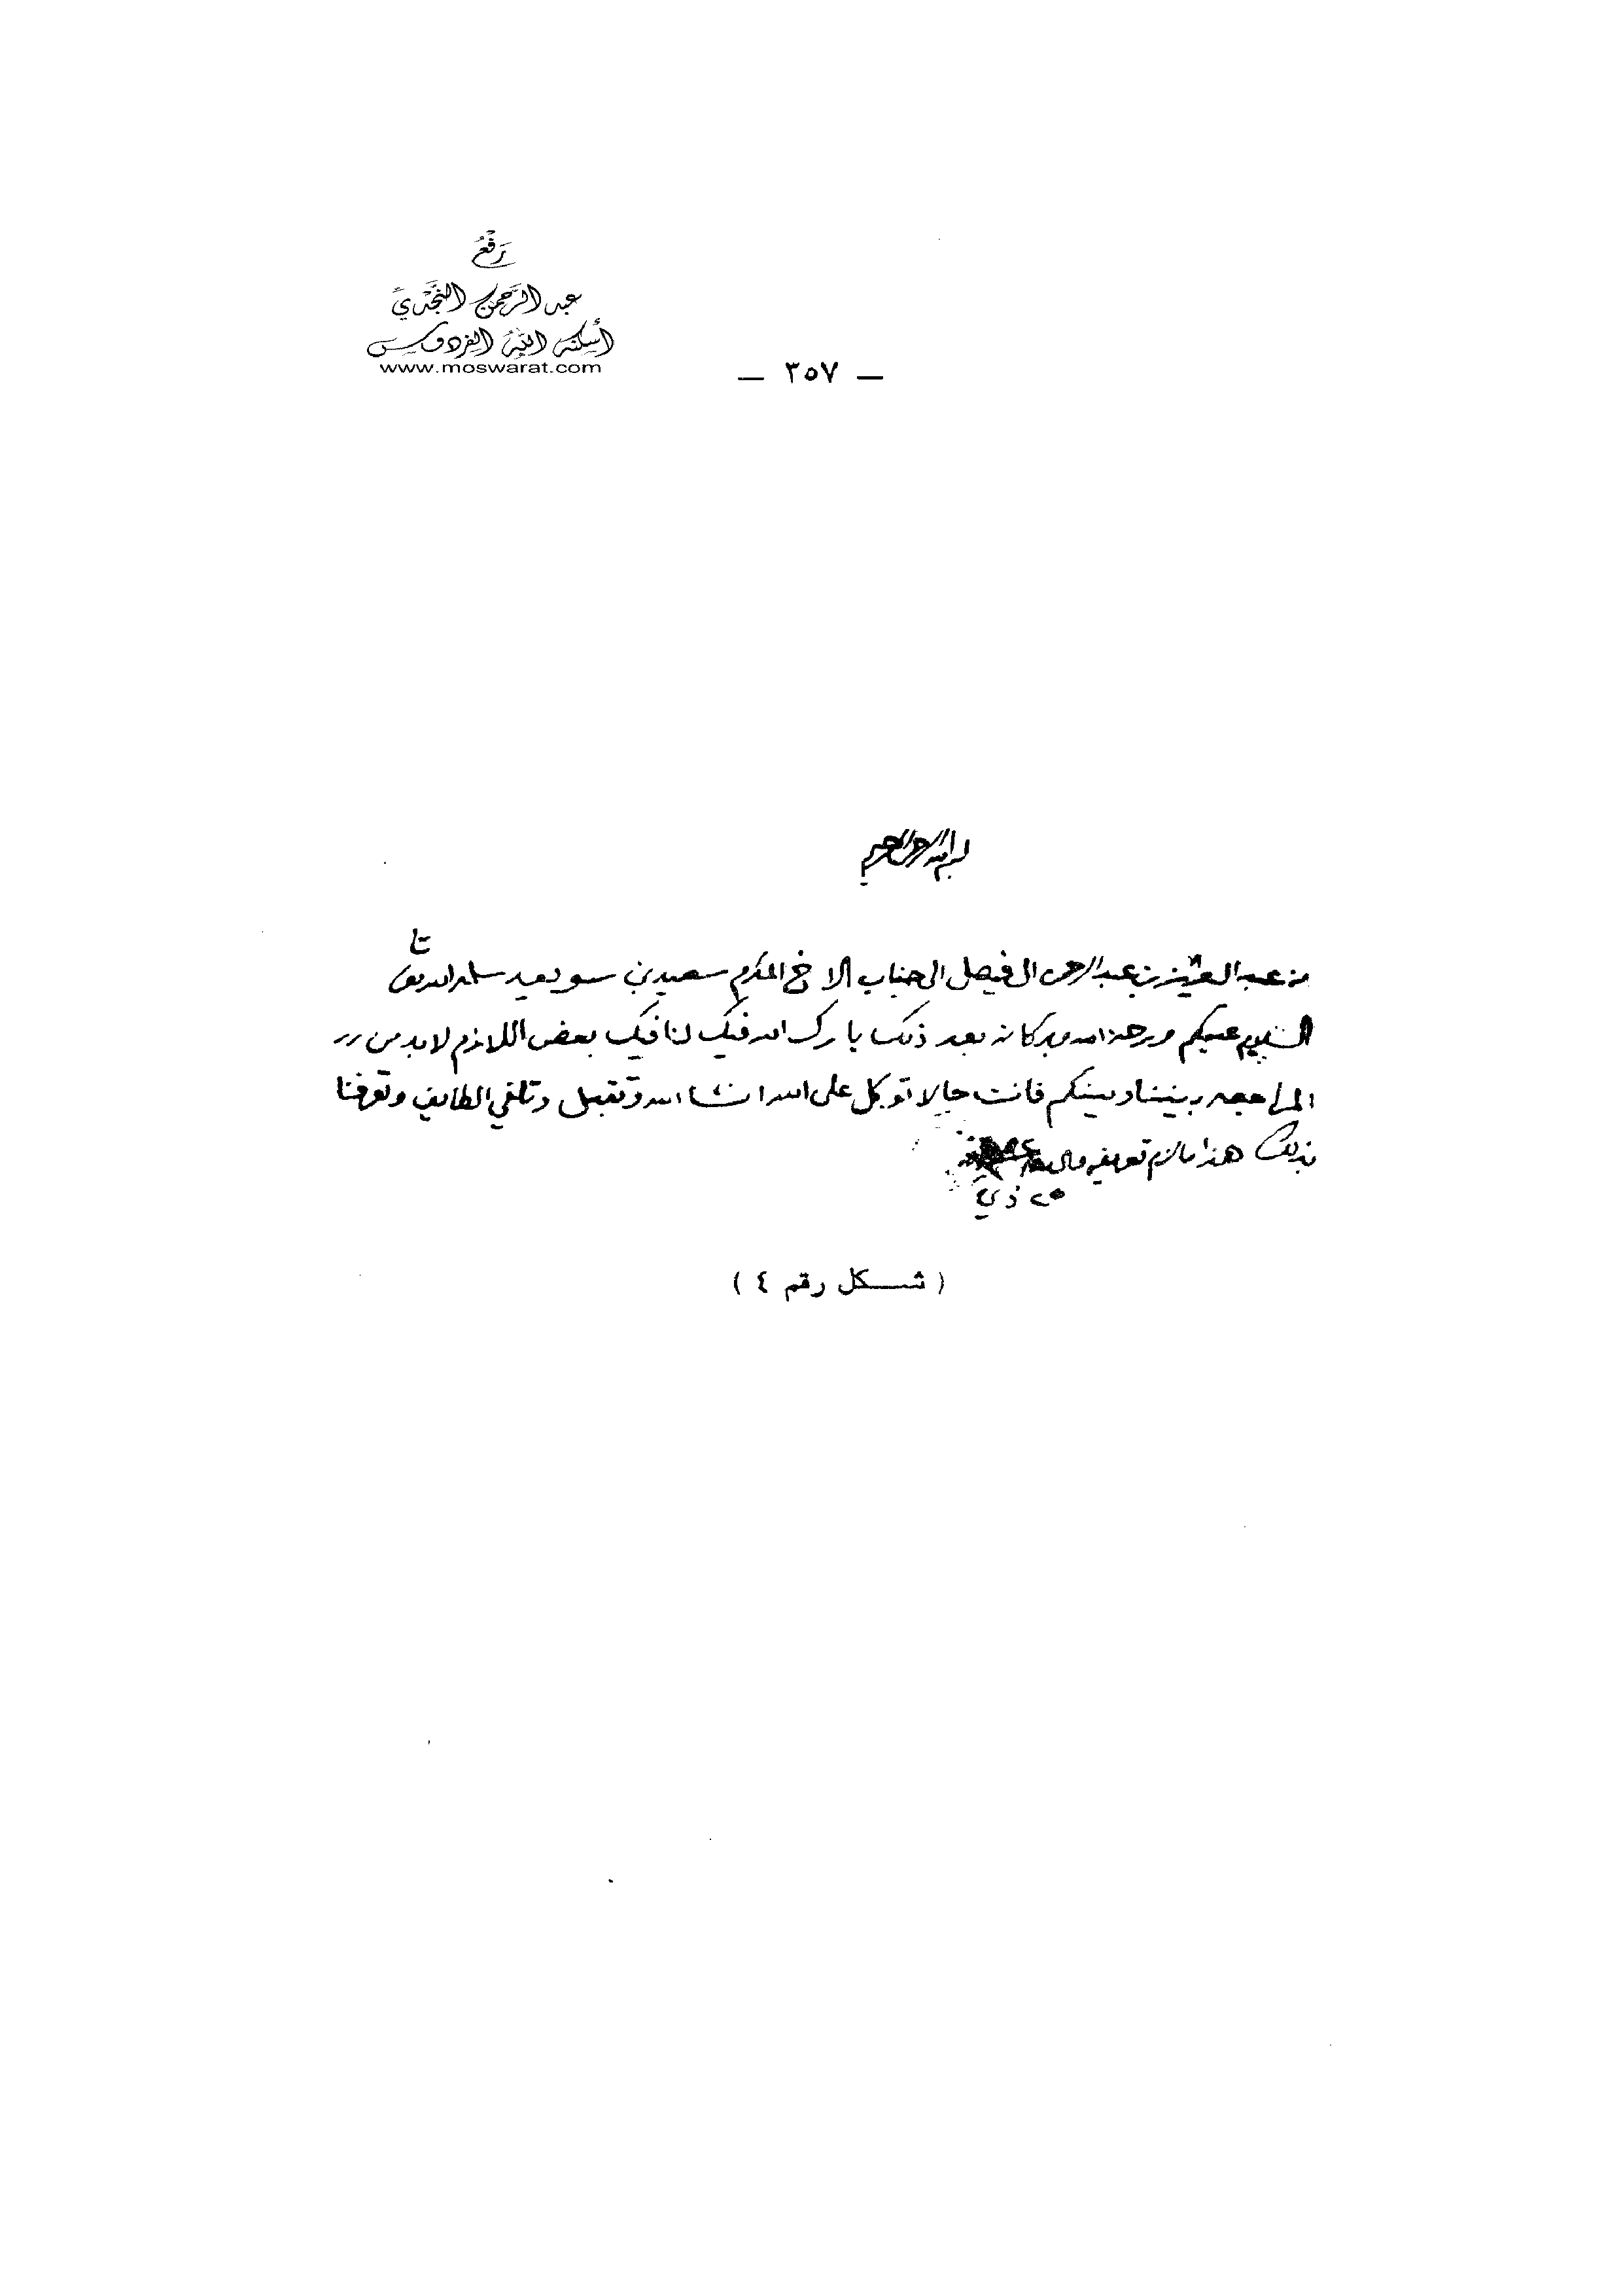 رَفْعُ
عبد الرَّحمن النَّجْدي
أسكنه الله الفردوس
www.moswarat.com
— ٣٥٧ —
بسم الله الرحمن الرحيم
من عبد العزيز بن عبد الرحمن ال فيصل الى جناب الاخ المكرم سعيد بن سويعيد سلمه الله تعا
السلام عليكم ورحمة الله وبركاته بعد ذلك بارك الله فيك لنا فيك بعض اللازم لا بد من
المراجعه بيننا وبينكم فانت حالا توكل على الله انشاء الله وتقبل وتلفي الطايف وتعرفنا
بذلك هذا ما لزم تعريفه والسلام
٢٥ ذي
( شكل رقم ٤ )